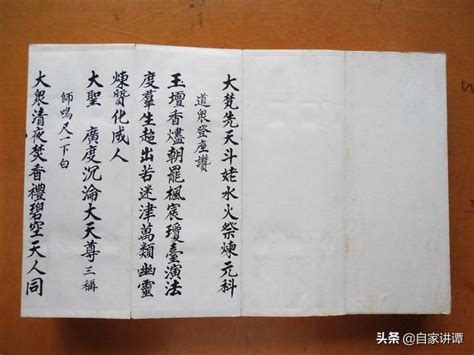 大梵先天斗姥水火祭煉元科
道衆發座讚
玉壇香燼朝罷楓宸瓊臺演法
度羣生超出若迷津萬類幽靈
煉質化成人
大聖 廣度沉淪大天尊 三稱
師鳴尺一下白
大衆清夜焚香禮碧空天人同
头条 @自家讲谭